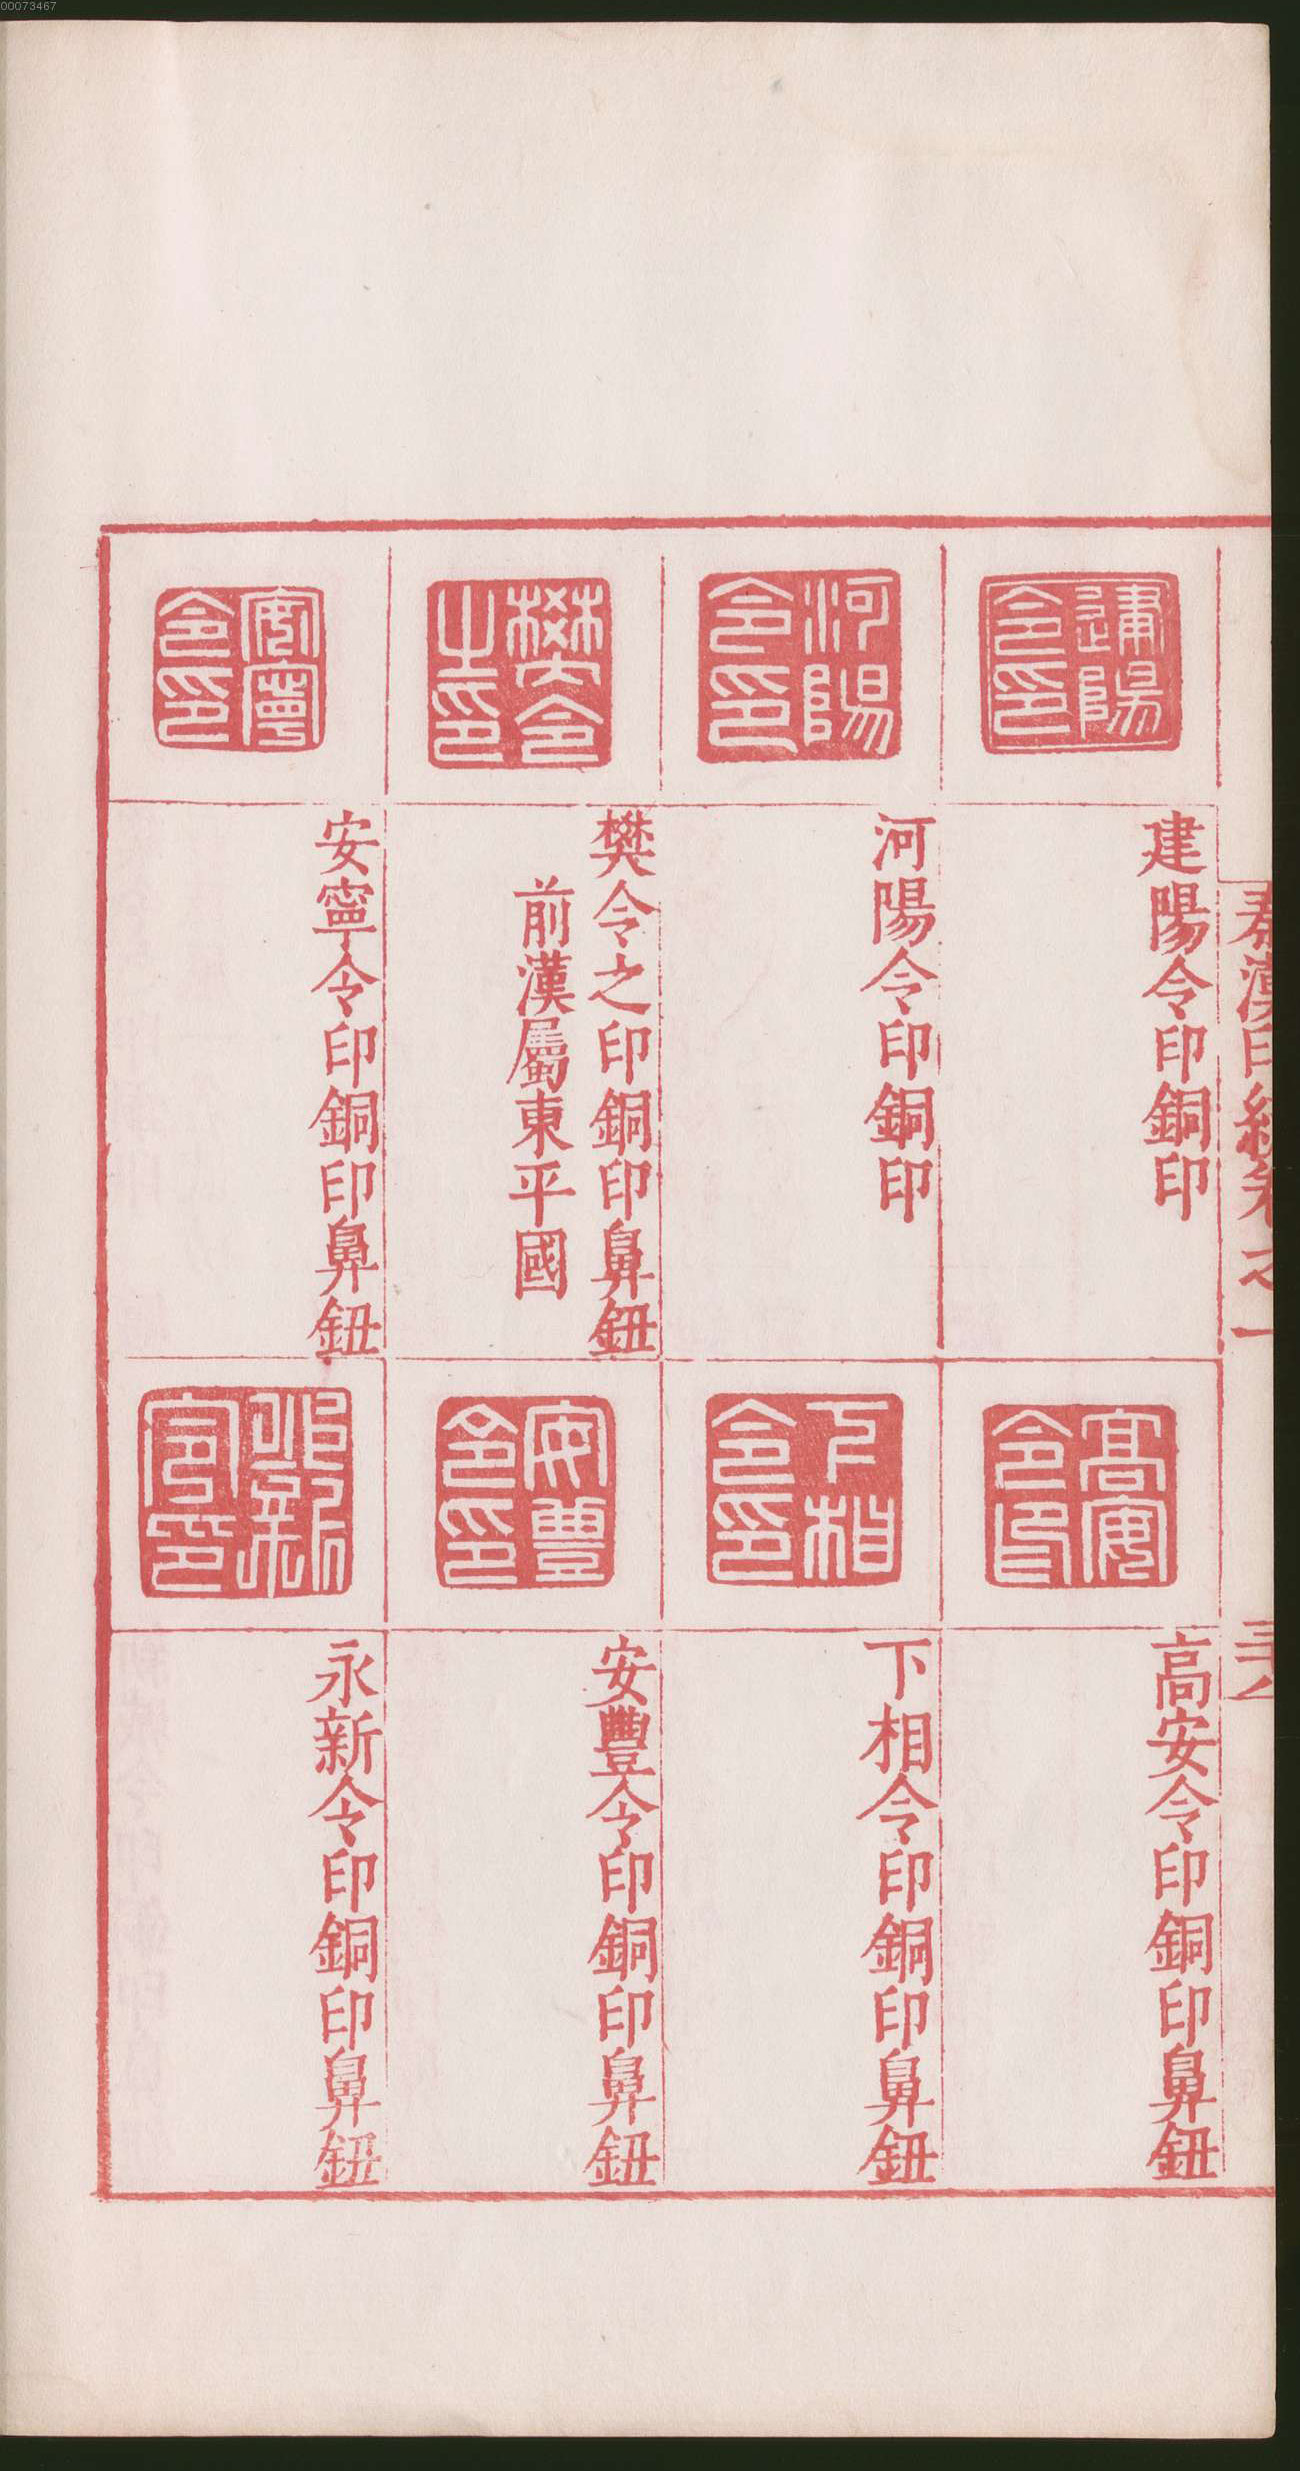 00073467
秦漢印統卷之一
建陽令印
建陽令印銅印
河陽令印
河陽令印銅印
樊令之印
樊令之印銅印鼻鈕
前漢屬東平國
安寧令印
安寧令印銅印鼻鈕
高安令印
高安令印銅印鼻鈕
下相令印
下相令印銅印鼻鈕
安豐令印
安豐令印銅印鼻鈕
永新令印
永新令印銅印鼻鈕